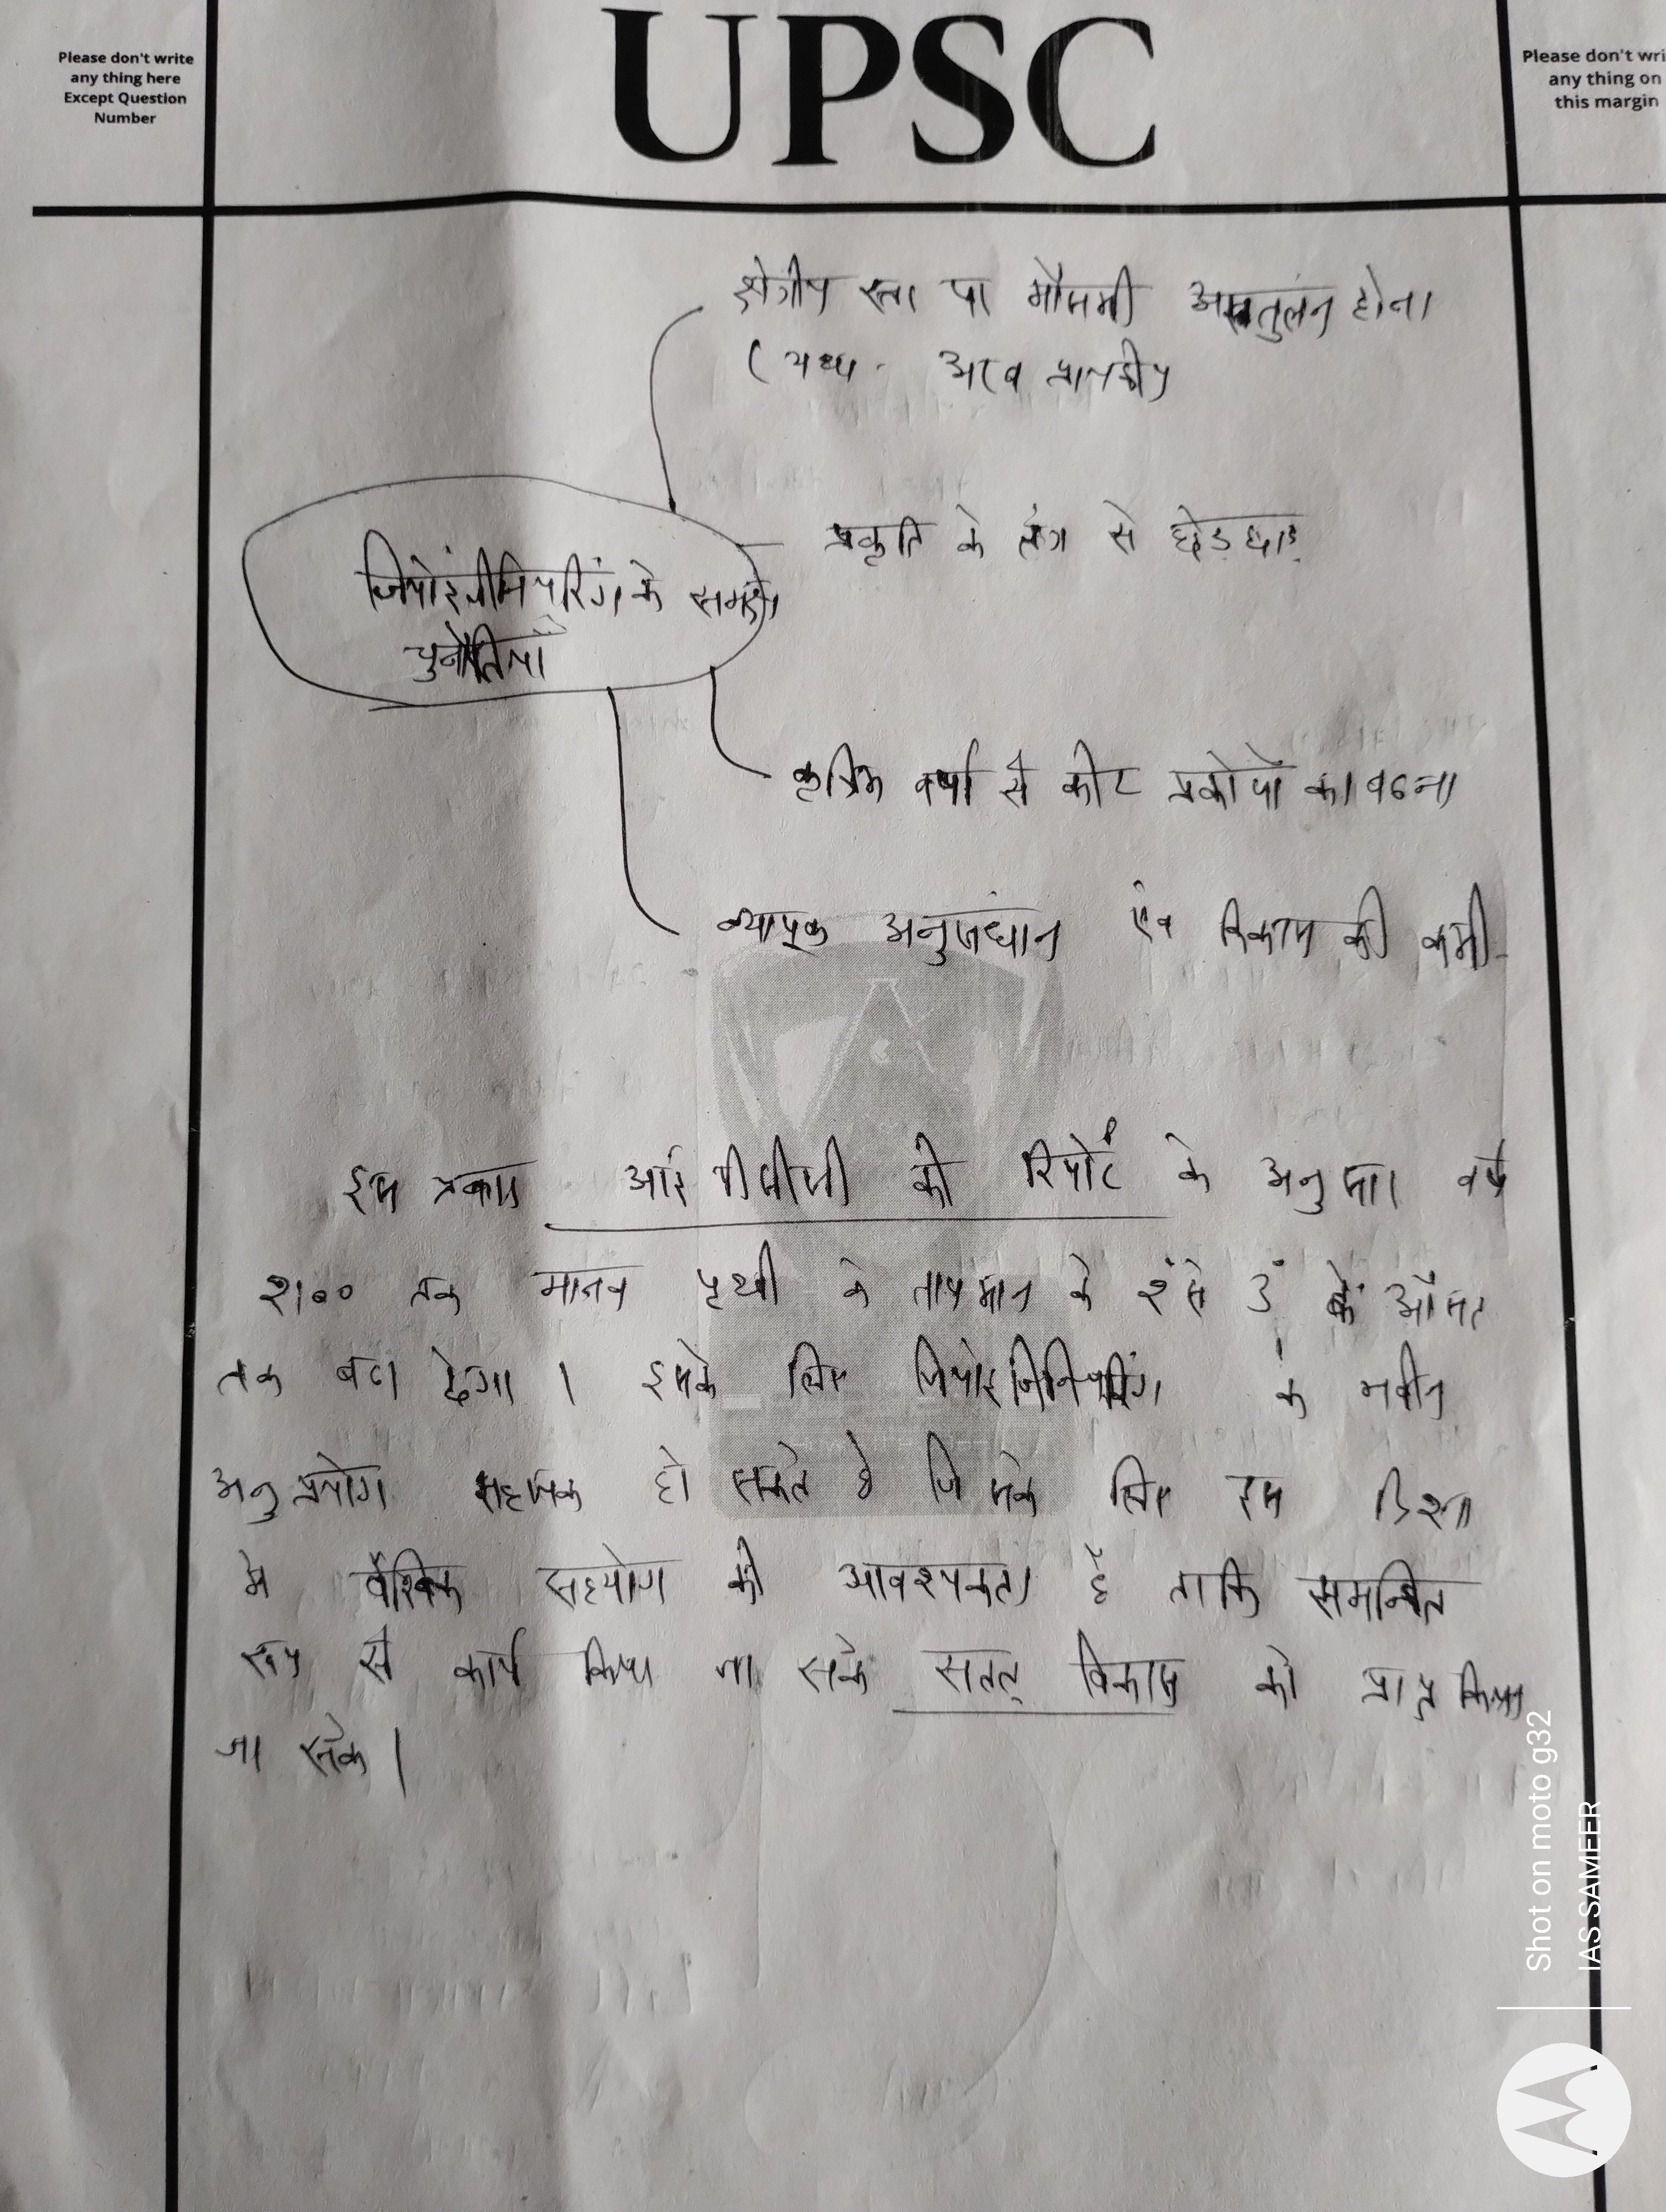 Please don't write
any thing here
Except Question
Number
UPSC
Please don't wri
any thing on
this margin
क्षेत्रीय स्तर पर मौसमी असंतुलन होना
(यथा - अरब प्रायद्वीप
प्रकृति के तंत्र से छेड़छाड़
जियोइंजीनियरिंग के समक्ष
चुनौतियाँ
कृत्रिम वर्षा से कीट प्रकोपों का बढना
व्यापक अनुसंधान एंव विकास की कमी
इस प्रकार आईपीसीसी की रिपोर्ट के अनुसार वर्ष
२१०० तक मानव पृथ्वी के तापमान के २° से ३° के औसत
तक बढा देगा । इसके लिए जियोइंजिनियरिंग के नवीन
अनुप्रयोग सहायक हो सकते है जिसके लिए इस दिशा
मे वैश्विक सहयोग की आवश्यकता है ताकि समन्वित
रूप से कार्य किया जा सके सतत् विकास को प्राप्त किया
जा सके ।
Shot on moto g32
IAS SAMEER